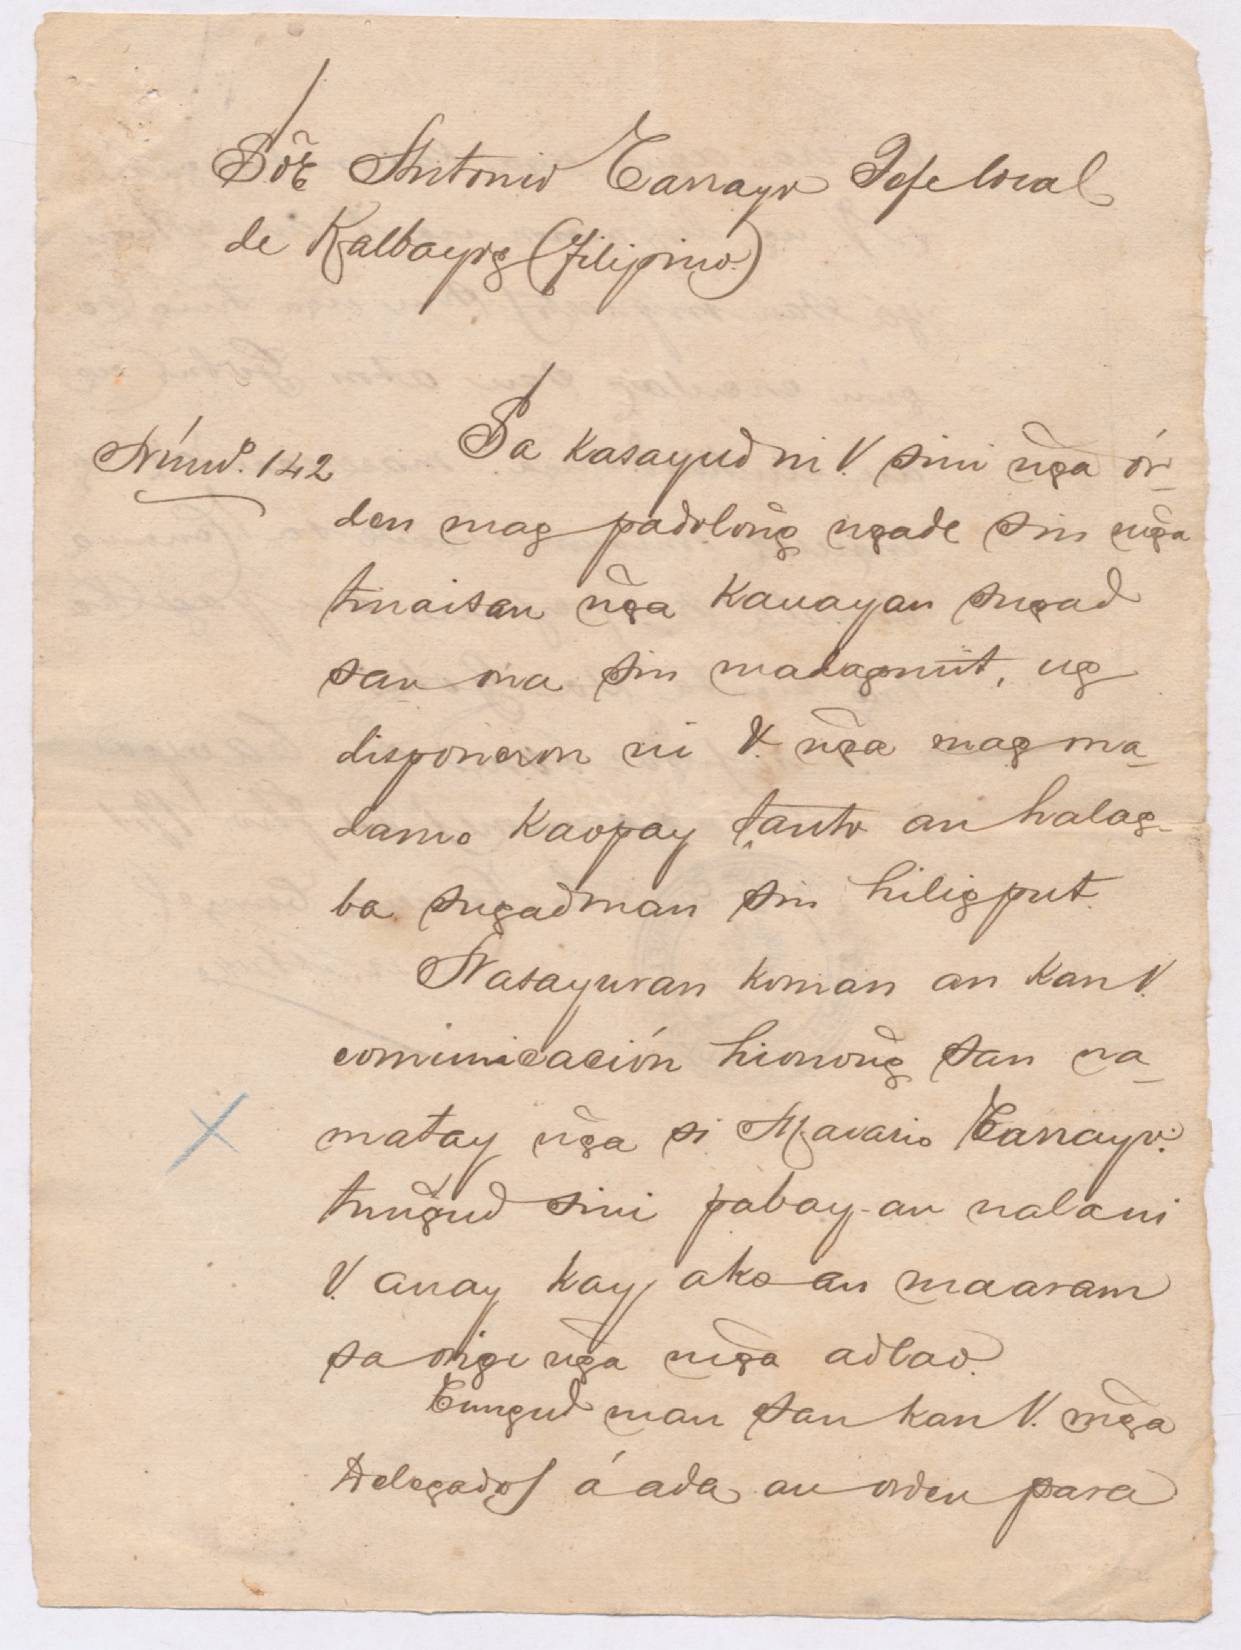 Sõr Antonio Tarrayo Jefe local
de Kalbayog (filipino)
Núm.º 142
Sa kasayud ni V. sini ng̃a ór-
den mag padolong̃ ngade sin mg̃a
tinaisan ng̃a kauayan sugad
san ona sin madagmiit, ug
disponeron ni V. ng̃a mag ma-
damo kaopay tanto an halag-
ba sugadman sin hiligput.
Nasayuran koman an kan V.
comunicación hionong̃ san na-
matay ng̃a si Macario Tarrayo:
tung̃ud sini pabay-an nala ni
V. anay kay ako an maaram
sa orige ng̃a mg̃a adlao.
Tungud man san kan V. mg̃a
Delegados á ada an orden para